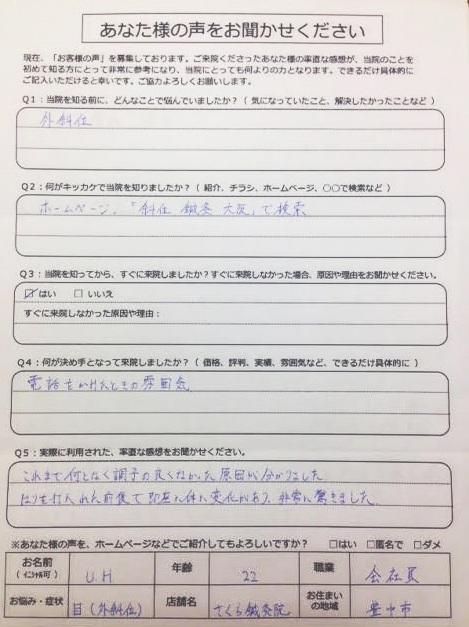 あなた様の声をお聞かせください
現在、「お客様の声」を募集しております。ご来院くださったあなた様の率直な感想が、当院のことを
初めて知る方にとって非常に参考になり、当院にとっても何よりの力となります。できるだけ具体的に
ご記入いただけると幸いです。ご協力よろしくお願いします。
Q1：当院を知る前に、どんなことで悩んでいましたか？（ 気になっていたこと、解決したかったことなど ）
外斜位
Q2：何がキッカケで当院を知りましたか？（ 紹介、チラシ、ホームページ、○○で検索など ）
ホームページ、「斜位 鍼灸 大阪」で検索
Q3：当院を知ってから、すぐに来院しましたか？すぐに来院しなかった場合、原因や理由をお聞かせください。
☑はい □いいえ
すぐに来院しなかった原因や理由：
Q4：何が決め手となって来院しましたか？（ 価格、評判、実績、雰囲気など、できるだけ具体的に ）
電話をかけたときの雰囲気
Q5：実際に利用された、率直な感想をお聞かせください。
これまで何となく調子の良くなかった原因が分かりました
はりを打たれた前後で即座に体に変化があり、非常に驚きました
※あなた様の声を、ホームページなどでご紹介してもよろしいですか？ □はい □匿名で □ダメ
お名前 U.H 年齢 22 職業 会社員
（ｲﾆｼｬﾙ可）
お悩み・症状 目（外斜位） 店舗名 さくら鍼灸院 お住まいの地域 豊中市